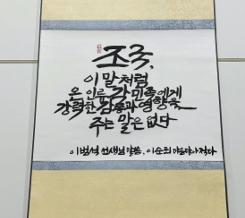 조국,
이 말처럼
온 인류 각 민족에게
강력한 감동과 영향을
주는 말은 없다
이범석 선생님 말씀. 이순희